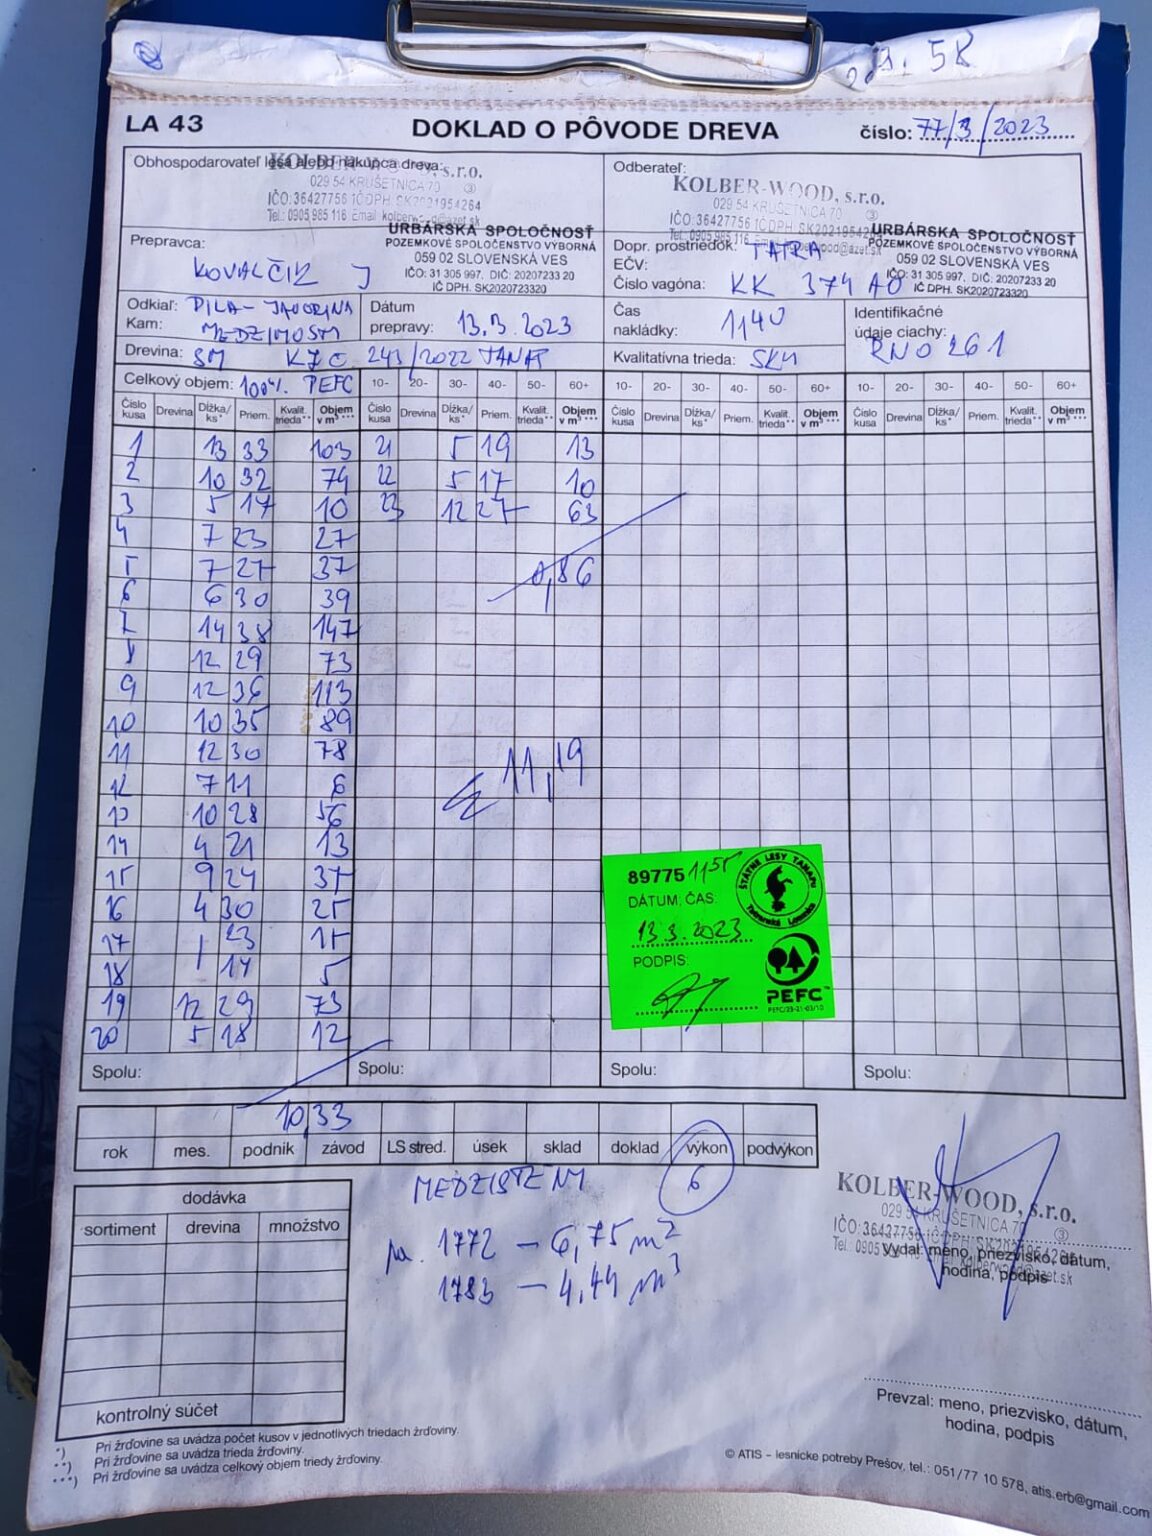 58
LA 43
DOKLAD O PÔVODE DREVA
číslo: 77/3/2023
Obhospodarovateľ lesa alebo nákupca dreva:
KOLBER-WOOD, s.r.o.
029 54 KRUŠETNICA 70 ③
IČO:36427756 IČDPH SK2021954264
Tel.: 0905 985 116 Email
URBÁRSKA SPOLOČNOSŤ
POZEMKOVÉ SPOLOČENSTVO VÝBORNÁ
059 02 SLOVENSKÁ VES
IČO: 31 305 997, DIČ: 20207233 20
IČ DPH. SK2020723320
Odberateľ:
KOLBER-WOOD, s.r.o.
029 54 KRUŠETNICA 70 ③
IČO:36427756 IČDPH SK2021954264
URBÁRSKA SPOLOČNOSŤ
POZEMKOVÉ SPOLOČENSTVO VÝBORNÁ
059 02 SLOVENSKÁ VES
IČO: 31 305 997, DIČ: 20207233 20
IČ DPH. SK2020723320
Prepravca:
KOVALČIK J
Dopr. prostriedok: TATRA
EČV:
Číslo vagóna: KK 374 AO
Odkiaľ: PILA-JAVORINA
Kam: MEDZIMOSTI
Dátum
prepravy: 13.3.2023
Čas
nakládky: 1140
Identifikačné
údaje ciachy:
RNO 261
Drevina: SM 243/2022 TANAP
Kvalitatívna trieda:
Celkový objem: 100%. PEFC
10- 20- 30- 40- 50- 60+ 10- 20- 30- 40- 50- 60+ 10- 20- 30- 40- 50- 60+
Číslo kusa Drevina Dĺžka/ks* Priem. Kvalit. trieda** Objem v m³*** Číslo kusa Drevina Dĺžka/ks* Priem. Kvalit. trieda** Objem v m³*** Číslo kusa Drevina Dĺžka/ks* Priem. Kvalit. trieda** Objem v m³*** Číslo kusa Drevina Dĺžka/ks* Priem. Kvalit. trieda** Objem v m³***
1 13 33 103 21 5 19 13
2 10 32 74 22 5 17 10
3 5 17 10 23 12 27 63
4 7 23 27
5 7 27 37 0,86
6 6 30 39
7 14 38 147
8 12 29 73
9 12 36 113
10 10 35 89
11 12 30 78 11,19
12 7 11 6
13 10 28 56
14 4 21 13
15 9 24 37
16 4 30 25
17 23 15
18 14 5
19 12 29 73
20 5 18 12
89775 1155
DÁTUM, ČAS:
13.3.2023
PODPIS:
ŠTÁTNE LESY TANAPu
Tatranská Lomnica
PEFC
PEFC/23-21-03/10
Spolu: Spolu: Spolu: Spolu:
10,33
rok mes. podnik závod LS stred. úsek sklad doklad výkon podvýkon
6
dodávka
sortiment drevina množstvo
kontrolný súčet
1772 – 6,75 m²
1783 – 4,44 m³
KOLBER-WOOD, s.r.o.
029 54 KRUŠETNICA 70 ③
IČO:36427756 IČDPH SK2021954264
Vydal: meno, priezvisko, dátum,
hodina, podpis
Prevzal: meno, priezvisko, dátum,
hodina, podpis
*) Pri žrďovine sa uvádza počet kusov v jednotlivých triedach žrďoviny.
**) Pri žrďovine sa uvádza trieda žrďoviny.
***) Pri žrďovine sa uvádza celkový objem triedy žrďoviny.
© ATIS – lesnícke potreby Prešov, tel.: 051/77 10 578, atis.erb@gmail.com